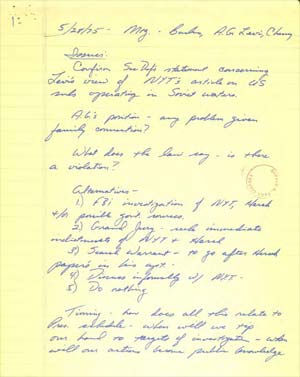 5/28/75 - Mtg. - Buchen, A.G. Levi, Cheney
Issues:
Confirm SecDef's statement concerning
Levi's view of NYT's article on US
subs operating in Soviet waters.
A.G.'s position - any problem given
family connection?
What does the law say - is there
a violation?
Alternatives -
1) FBI investigation of NYT, Hersh
&/or possible govt. sources.
2) Grand Jury - seek immediate
indictments of NYT & Hersh
3) Search Warrant - to go after Hersh
papers in his apt.
4) Discuss informally w/ NYT -
5) Do nothing
Timing - how does all this relate to
Pres. schedule - when will we tip
our hand to targets of investigation - when
will our actions become public knowledge